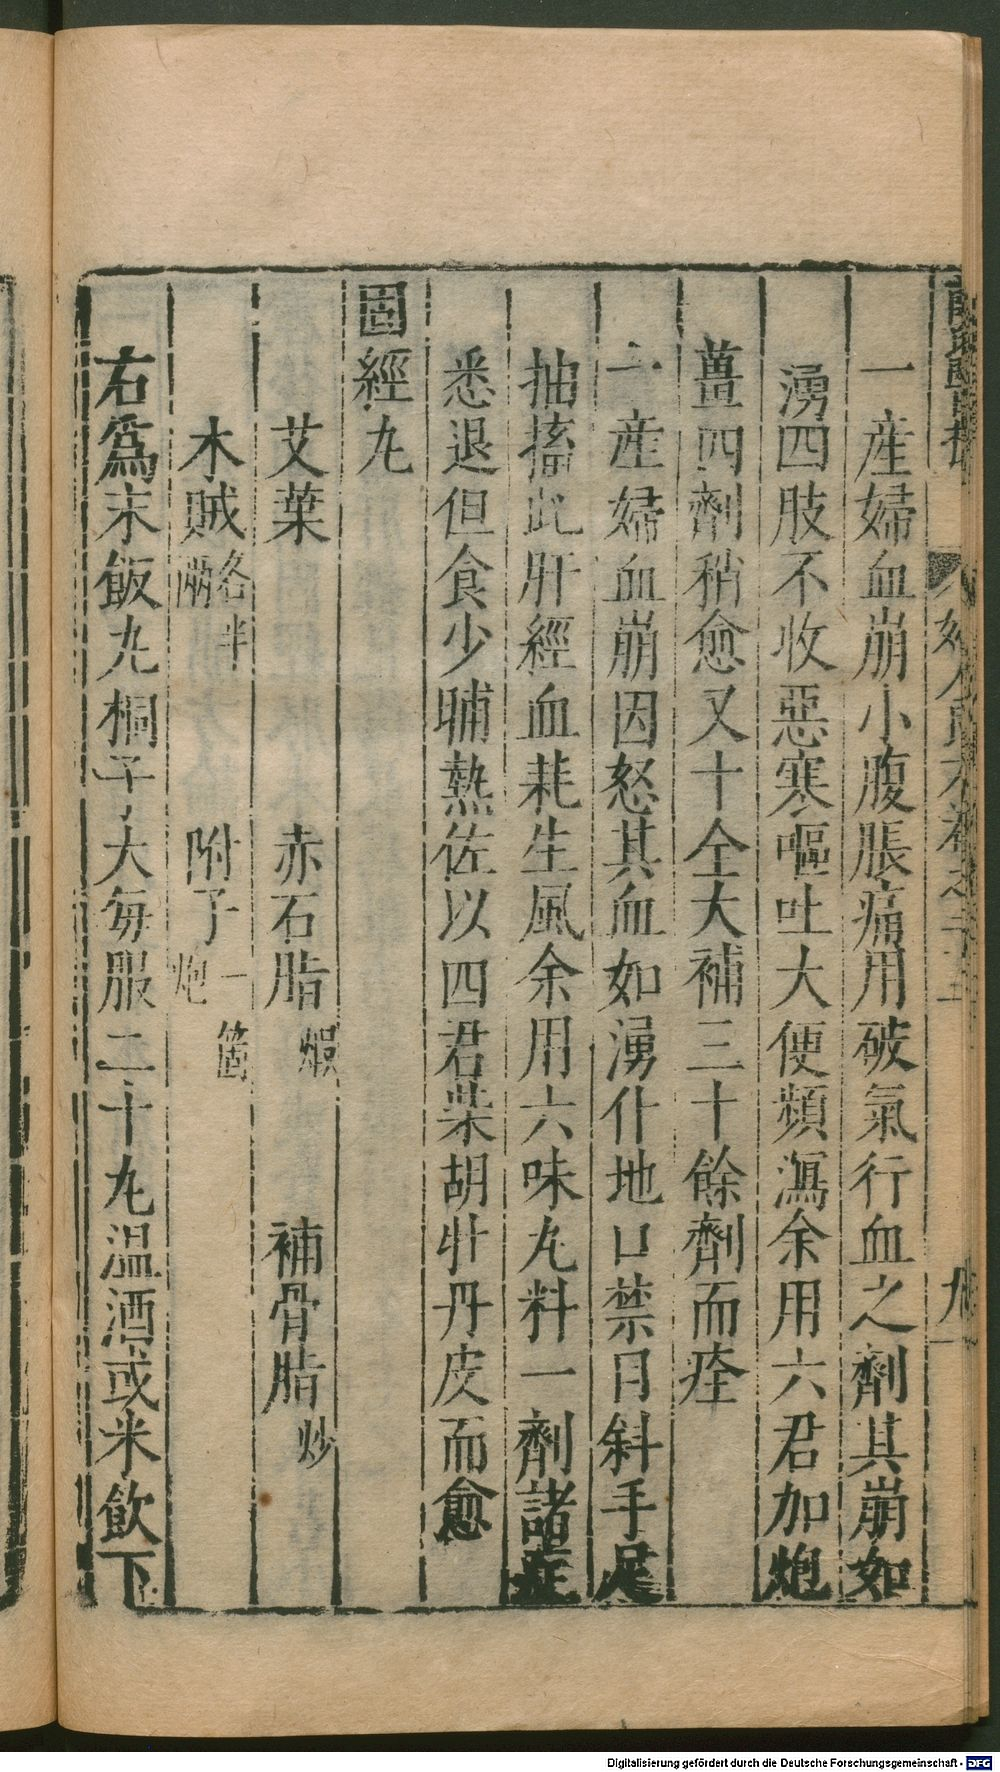 一產婦血崩小腹脹痛用破氣行血之劑其崩如
湧四肢不收惡寒嘔吐大便頻瀉余用六君加炮
薑四劑稍愈又十全大補三十餘劑而痊
一產婦血崩因怒其血如湧仆地口禁目斜手足
抽搐此肝經血耗生風余用六味丸料一劑諸症
悉退但食少晡熱佐以四君柴胡牡丹皮而愈
固經丸
艾葉 赤石脂煆 補骨脂炒
木賊各半兩 附子一箇炮
右爲末飯丸桐子大每服二十丸溫酒或米飲下
Digitalisierung gefördert durch die Deutsche Forschungsgemeinschaft - DFG